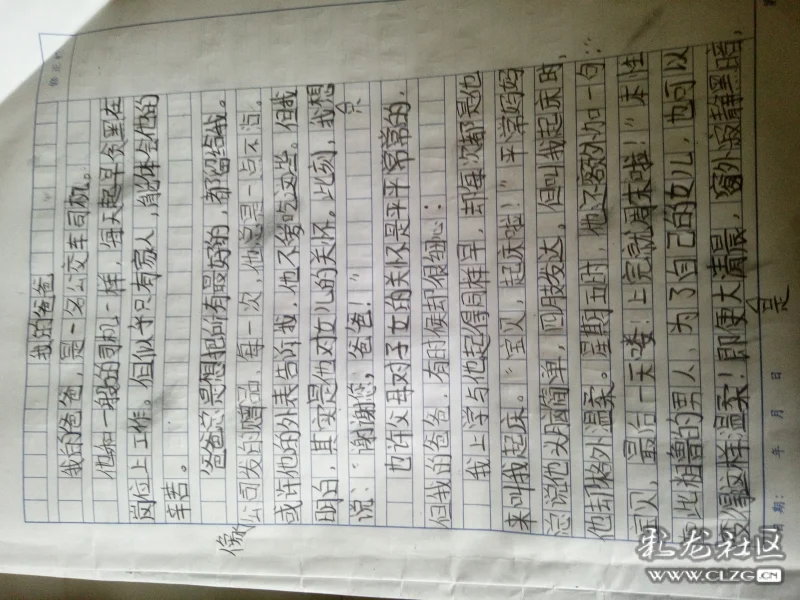 我的爸爸
我的爸爸，是一名公交车司机。
他如一般的司机一样，每天起早贪黑在
岗位上工作。但似乎只有家人，能体会他的
辛苦。
爸爸总是想把所有最好的，都留给我。
像公司发的赠品，每一次，他总是一点不沾。
或许他的外表告诉我，他不爱吃这些。但我
明白，其实是他对女儿的关怀。此刻，我想
说：“谢谢您，爸爸！”
也许父母对子女的关怀是平平常常的，
但我的爸爸，有时候却很细心：
我上学与他起得同样早，却每次都是他
来叫我起床。“宝贝，起床啦！”平常妈妈
总说他头脑简单，四肢发达，但叫我起床时，
他却格外温柔。星期五时，他还额外加一句：“
宝贝，最后一天喽！上完就周末啦！”本性
如此粗鲁的男人，为了自己的女儿，也可以
变得这样温柔！即便大清晨，窗外寂静黑暗，
只
是
年 月 日
彩龙社区
WWW.CLZG.CN